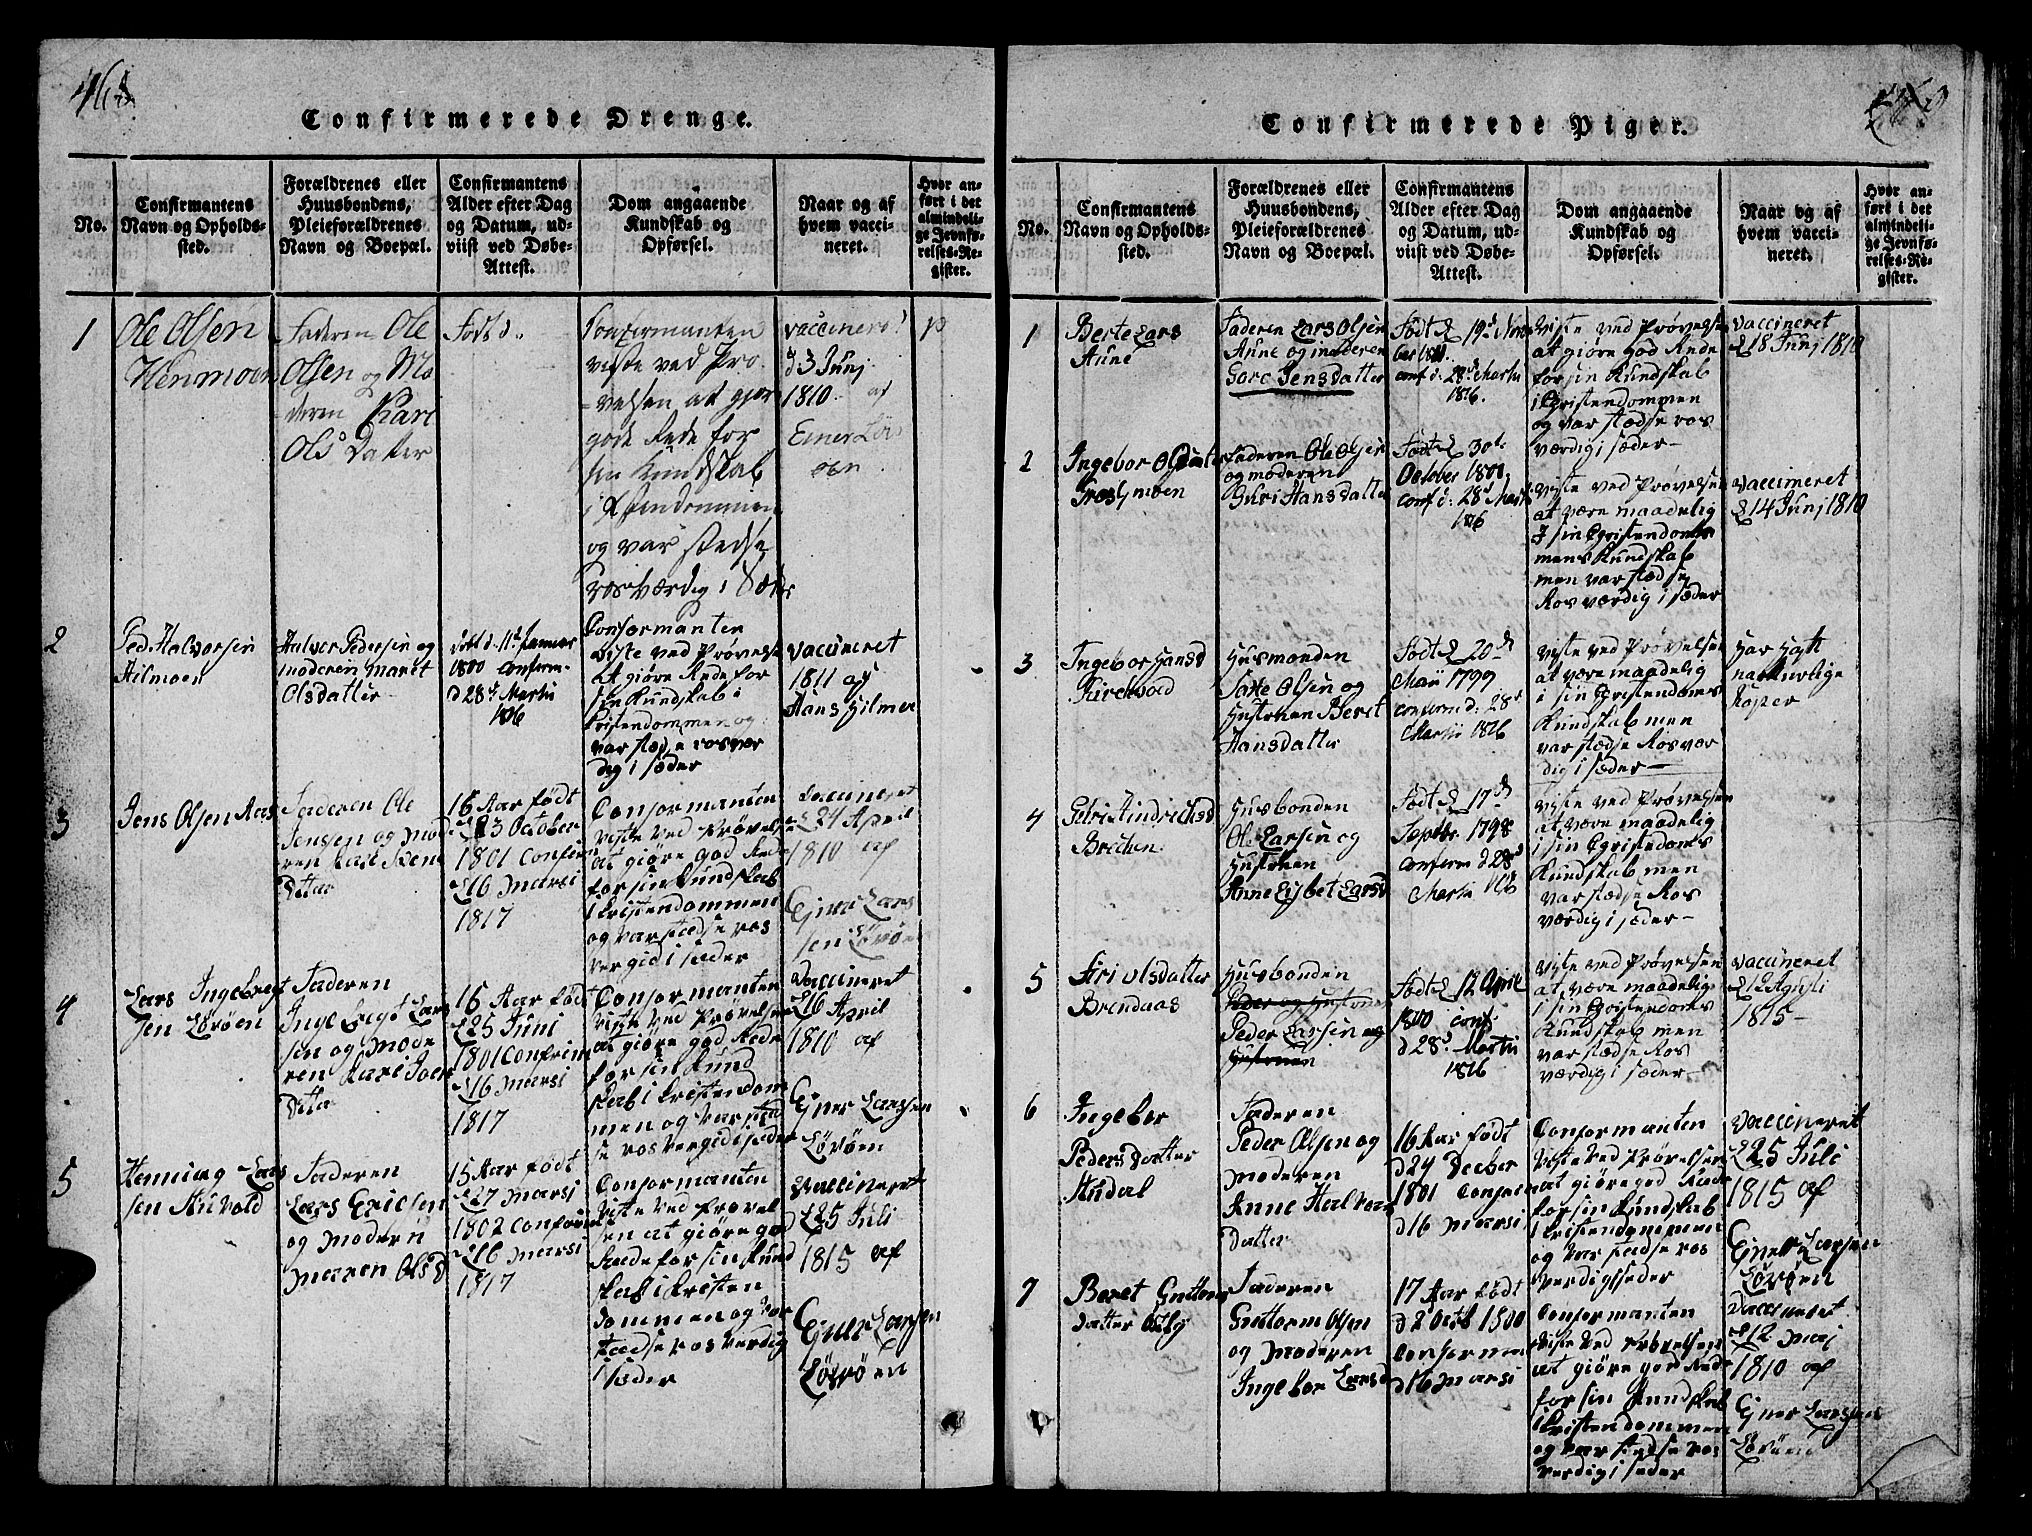 468
Confirmerede Drenge.
No.
Confirmantens
Navn og Opholds-
sted.
Forældrenes eller
Huusbondens,
Pleieforældrenes
Navn og Boepæl.
Confirmantens
Alder efter Dag
og Datum, ud-
viist ved Døbe-
Attest.
Dom angaaende
Kundskab og
Opførsel.
Naar og af
hvem vacci-
neret.
Hvor an-
ført i det
almindeli-
ge Jevnfø-
relses-Re-
gister.
1
Ole Olsen
Henmoen
Faderen Ole
Olsen og Mo
deren Kari
Ols Datter
Føds d.
Confirmanten
viste ved Prø
velsen at gjør
gode Rede for
sin Kundskab
og var stedse
rosværdig i Sæder
vaccinerd
d 3 Junj
1810 af
Einer Lör
öen
2
Ped Halvorsen
Hilmoen
Halvor Pedersen og
moderen Maret
Olsdatter
født d. 11t Januar
1800 Conferm-
d 28d Martii
1816
Conformanten
viste ved Prøvelse
at giöre Rede for
sin Kundskab i
Cristendommen og
var stædse rosvær
dig i sæder
vaccineret
1811 af
Hans Hilmo
3
Jens Olsen Aas
Faderen Ole
Jensen og mod
eren
Dtter
16 Aar födt
d 23 October
1801 Confirm
d 16 Marsi
1817
Conformanten
viste ved Prövelse
at giöre god Rede
for sin Kundskab
i Kristendommen
og var stædse ros
vergid i sæder
vaccineret
d 24 April
1810 af
Ejner Lars
sen Löröen
4
Lars Ingebregt
sen Löröen
Faderen
Ingebregt Lars
sen og Mode
ren Kari Joen
Dtter
16 Aar födt
d 25 Juni
1801 Confrim
d 16 Marsi
1817
Conformanten
viste ved Prøvelse
at giöre god Rede
for sin Kund
skab i Kristendom
men og var stæd
se ros vergid i sæder
vaccineret
d 16 April
1810 af
Ejner Larssen
Löröen
5
Henning Lars
sen Auvold
Faderen
Lars Ericsen
og Moderen
Maren Ols D
15 Aar födt
d 27 Marsi
1802 Conform
d 16 Marsi
1817
Conformanten
viste ved Prøvel
sen at giöre god
Rede for sin Kund
skab i Kristen
dommen og var
stædse ros verdig
i sæder
vaccineret
d 25 Juli
1815 af
Ejner Larsen
Löröen
Confirmerede Piger.
No.
Confirmantens
Navn og Opholds-
sted.
Forældrenes eller
Huusbondens,
Pleieforældrenes
Navn og Boepæl.
Confirmantens
Alder efter Dag
og Datum, ud-
viist ved Døbe-
Attest.
Dom angaaende
Kundskab og
Opførsel.
Naar og af
hvem vacci-
neret.
Hvor an-
ført i det
almindeli-
ge Jevnfø-
relses-Re-
gister.
1
Berte Lars
Aune
Faderen Lars Olsen
Aune og moderen
Goro Jensdatter
Födt d 19d Novem
ber
conf d: 28d Martii
1816.
viste ved Prøvelsen
at giöre god Rede
for sin Kundskab
i Cristendommen
og var stædse ros
værdig i sæder
vaccineret
d 18 Junj 1810
2
Ingebor Olsdatter
Faderen Ole Olsen
og moderen
Guri Hansdatter
Födt d 30te
October 1800
conf d: 28d Martii
1816
viste ved Prøvelsen
at være maadelig
i sin Cristendoms
mens Kundskab
men var stædse
Rosværdig i sæder
vaccineret
d 14 Junj 1810
3
Ingebor Hansd
Kirckvold
Husmanden
Olsen og
Hustruen Beret
Hansdatter
Födt d 20de
Marti 1799
conferm d: 28d
Martii 1816
viste ved Prøvelsen
at være maadelig
i sin Cristendoms
Kundskab men
var stædse Rosvær
dig i sæder
Har Hatt
naturlige
Koper
4
Brecken
Husbonden
Ole Larsen og
Hustruen
Anne Lisbet Larsd
Födt d 17de
Septbr. 1798
conferm d 28d
Martii 1816
viste ved Prøvelsen
at være maadelig
i sin Cristendoms
Kundskab men
var stædse Ros
værdig i sæder
5
Siri Olsdatter
Brendaas
Husbonden
Peder og Hustruen
Peder Larsen og
Hustruen
Födt d 12 April
1800 conf
d 28d Martii
1816
viste ved Prøvelsen
at være maadelig
i sin Cristendoms
Kundskab men
var stædse Ros
værdig i sæder
vaccineret
d 12 Agusti
1815
6
Ingebor
Peders Datter
Faderen
Peder Olsen og
Moderen
Anne Halvors
Datter
16 Aar födt
d 24 Decber
1801 Confir
d 16 Marsi
Conformanten
viste ved Prövelsen
at giöre god Rede
for sin Kundskab
i Kristendommen
og var stædse ros
verdig i sæder
vaccineret
d 25 Juli
1815 af
Ejner Larsen
Löröen
7
Beret Guttorms
Datter Östby
Faderen
Guttorm Olsen
og Moderen
Ingebor Larsd
17 Aar födt
d 2 Octb 1800
Conformen
d 16 Marsi
Conformanten
viste ved Prövelsen
at giöre god Rede
for sin Kundskab
i Kristendommen
og var stædse ros
verdig i sæder
vaccineret
d 12 Maj
1810 af
Ejner Larsen
Löröen